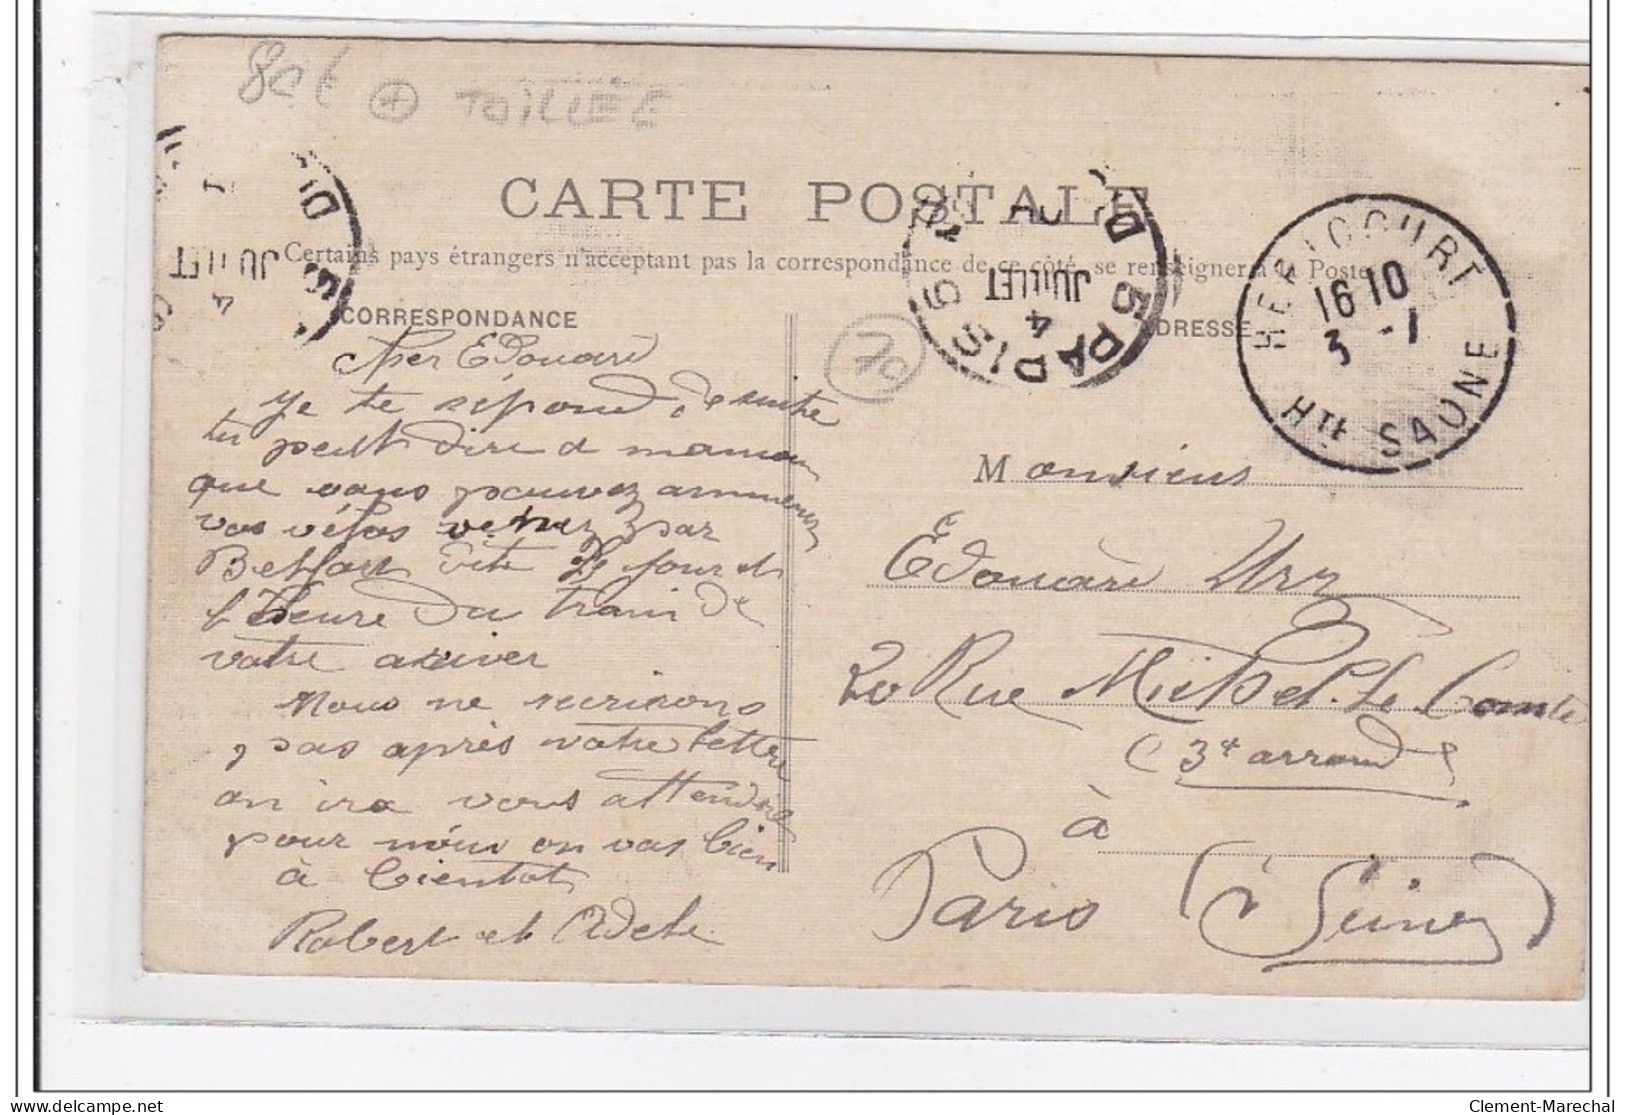 80€ + TOILLÉE
CARTE POSTALE
Certains pays étrangers n'acceptant pas la correspondance de ce côté, se renseigner à la Poste
CORRESPONDANCE
ADRESSE
JUILLET
4
PARIS
4
JUILLET
HERICOURT
16 10
3 -1
Hte SAONE
70
Cher Edouard
Je te répond de suite
tu peut dire a maman
que vous pouvez ammener
vos vélos venez par
Belfort dite le jour et
l'heure du train de
votre ariver
Nous ne recrirons
pas après votre lettre
on ira vous attendre
pour nous on vas bien
à bientot
Robert et Adele
Monsieur
Edouard Urz
20 Rue Michel-Le Comte
(3e arrond
à
Paris (Seine)
Clement-Marechal